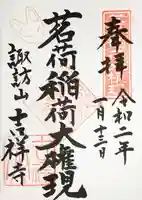 奉拝
令和二年
一月十三日
茗荷稲荷大権現
諏訪山
吉祥寺